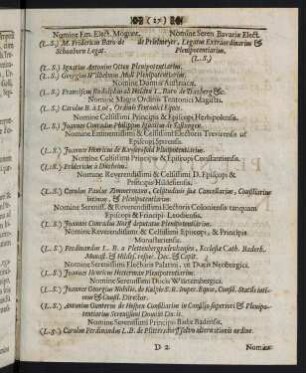 ( 27 )
Nomine Em. Elect. Mogunt. Nomine Seren. Bavariæ Elect.
(L.S.) M. Fridericus Baro de de Prielmeyer, Legatus Extraordinarius &
Schonborn Legat. Plenipotentiarius.
(L.S.)
(L.S.) Ignatius Antonius Otten Plenipotentiarius.
(L.S.) Georgius Wilhelmus Moll Plenipotentiarius.
Nomine Domus Austriacæ.
(L.S.) Franciscus Rudolphus ab Halden L. Baro de &c.
Nomine Magni Ordinis Teutonici Magistri.
(L.S.) Carolus B. à Loë, Ordinis Teutonici Eques.
Nomine Celsissimi Principis & Episcopi Herbipolensis.
(L.S.) Joannes Conradus Philippus Ignatius de Tastungen.
Nomine Eminentissimi & Celsissimi Electoris Trevirensis ut
Episcopi Spirensis.
(L.S.) Joannes Henricus de Kaysersfeld Plenipotentiarius.
Nomine Celsissimi Principis & Episcopi Constantiensis.
(L.S.) Fridericus à Dürheim.
Nomine Reverendissimi & Celsissimi D. Episcopi &
Principis Hildesiensis.
(L.S.) Carolus Paulus Zimmermann, Celsitudinis suæ Cancellarius, Consiliarius
intimus, & Plenipotentiarius.
Nomine Sereniss. & Reverendissimi Electoris Coloniensis tanquam
Episcopi & Principis Leodiensis.
(L.S.) Joannes Conradus Norff deputatus Plenipotentiarius.
Nomine Reverendissimi & Celsissimi Episcopi, & Principis
Monasteriensis.
(L.S.) Ferdinandus L. B. à Plettenberg ex Lenhausen, Ecclesiæ Cath. Paderb.
Monast. & Hildes. respec. Dec. & Capit.
(L.S.) Joannes Henricus Hetterman Plenipotentiarius.
Nomine Serenissimi Electoris Palatini, ut Ducis Neoburgici.
(L.S.) Joannes Henricus Hetterman Plenipotentiarius.
Nomine Serenissimi Ducis Würtenbergici.
(L.S.) Joannes Georgius Nobilis de Kulpis S. R. Imper. Eques, Consil. Status intimus
& Consist. Director.
(L.S.) Antonius Guntherus de Hespen Consiliarius in Consilio superiori & Plenipotentiarius
Serenissimi Domini Ducis.
Nomine Serenissimi Principis Badæ Badensis.
(L.S.) Carolus Ferdinandus L.B. de Plittersdorff salvo alternationis ordine.
D 2 Nomine